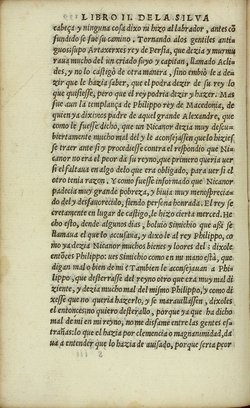 LIBRO II. DE LA SILVA
cabeça y ninguna cosa dixo ni hizo al labrador, antes cõ
fundido se fue su camino. Tornando alos gentiles anti
guos supo Artaxerxes rey de Persia, que dezia y murmu
raua mucho mal del un criado suyo y capitan, llamado Acli
des, y no lo castigò de otra manera, sino embiòle a de
zir que le hazia saber, que el podria dezir de su rey lo
que quisiesse, pero que el rey podia dezir y hazer. Mas
fue aun la templança de Philippo rey de Macedonia, de
quien ya diximos padre de aquel grande Alexandre, que como
le fuesse dicho, que un Nicanor muy desembueltamente
dezia mucho mal del y le aconsejassen que lo hiziesse
traer ante si y procediesse contra el respondio que Ni
canor no era el peor de su reyno, que primero queria uer
si el faltaua en algo dello que era obligado, para uer si el
otro tenia razon. Y como fuesse informado que Nicanor
padecia muy grande pobreza, y biuia muy menospreciado
del y desfauorecido, siendo persona honrada. El rey se
cretamente en lugar de castigo, le hizo cierta merced. He
cho esto, dende algunos dias, boluio Simichio que assi se
llamaua el que lo acusaua, y dixole al rey Philippo, co
mo ya dezia Nicanor muchos bienes y loores del: dixole
entonces Philippo: ues Simichio como en mi mano està, que
digan mal o bien de mi? Tambien le aconsejauan a Phi
lippo, que desterrasse del reyno otro que era muy mal di
ziente, y dezia mucho mal del mismo Philippo, y como di
xesse que no queria hazerlo, y se marauillassen, dixoles
el entonces: no quiero desterrallo, porque ya que ha dicho
mal de mi en mi reyno, no me disfame entre las gentes es
trañas: lo que el hazia por clemencia o magnanimidad, da
ua a entender que lo hazia de auisado, porque seria peor